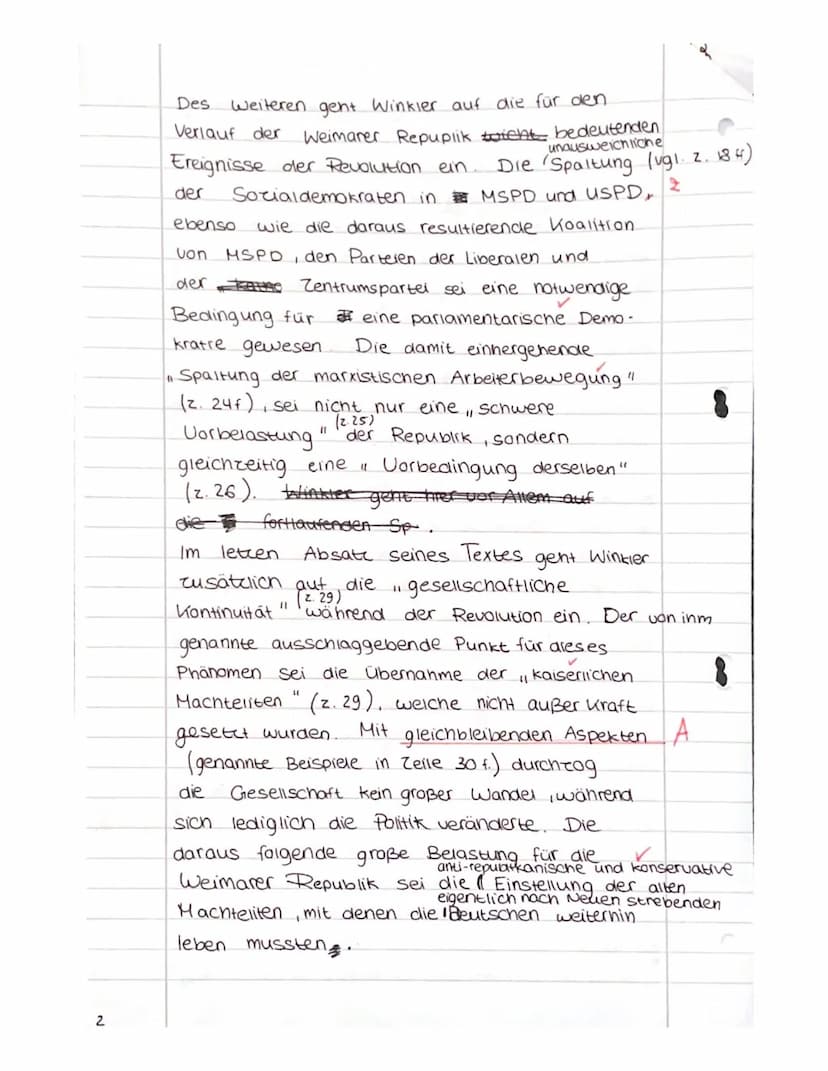 Des weiteren geht Winkler auf die für den
Verlauf der Weimarer Repuplik bedeutenden
unausweichliche
Ereignisse der Revolution ein. Die Spaltung (vgl. Z. 18 f)
der Sozialdemokraten in MSPD und USPD,
Z
ebenso wie die daraus resultierende Koalition
von MSPD, den Parteien der Liberalen und
der Zentrumspartei sei eine notwendige
Bedingung für eine parlamentarische Demo-
kratie gewesen. Die damit einhergehende
„Spaltung der marxistischen Arbeiterbewegung"
(Z. 24f), sei nicht nur eine „schwere
(Z. 25)
Vorbelastung" der Republik, sondern
gleichzeitig eine „Vorbedingung derselben"
(Z. 26). Winkler geht hier vor Allem auf
die fortlaufenden Sp.
Im letzen Absatz seines Textes geht Winkler
zusätzlich auf die „gesellschaftliche
(Z. 29)
Kontinuität" während der Revolution ein. Der von ihm
genannte ausschlaggebende Punkt für dieses
Phänomen sei die Übernahme der „kaiserlichen
Machteliten" (Z. 29), welche nicht außer Kraft
gesetzt wurden. Mit gleichbleibenden Aspekten A
(genannte Beispiele in Zeile 30 f.) durchzog
die Gesellschaft kein großer Wandel, während
sich lediglich die Politik veränderte. Die
daraus folgende große Belastung für die
anti-republikanische und konservative
Weimarer Republik sei die Einstellung der alten
eigentlich nach Neuen strebenden
Machteliten, mit denen die Deutschen weiterhin
leben mussten.
2